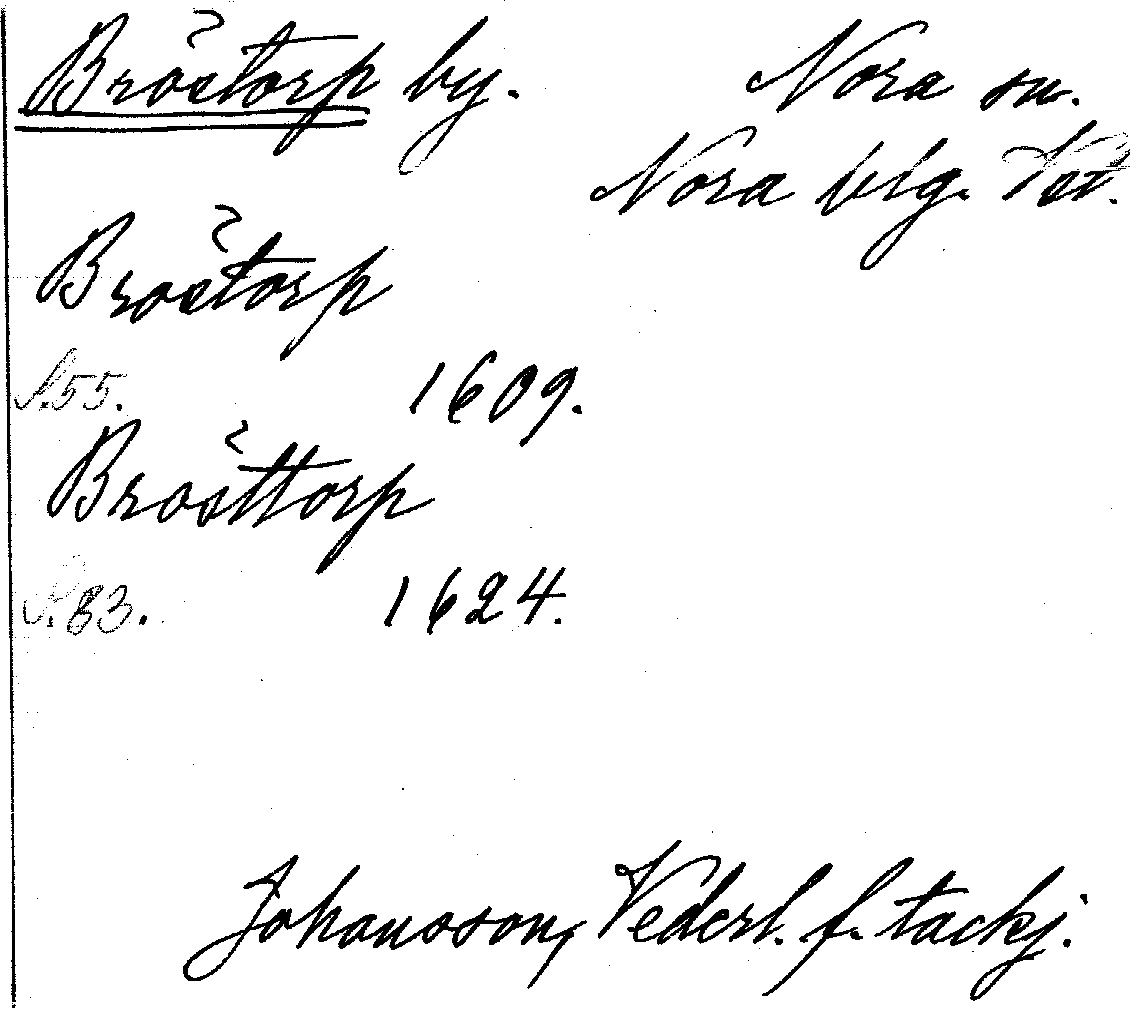 Bröstorp by. Nora sn.
Nora blg. Vst.
Bröstorp
S.55. 1609.
Brösttorp
S.83. 1624.
Johansson, Vederl. f. tackj.